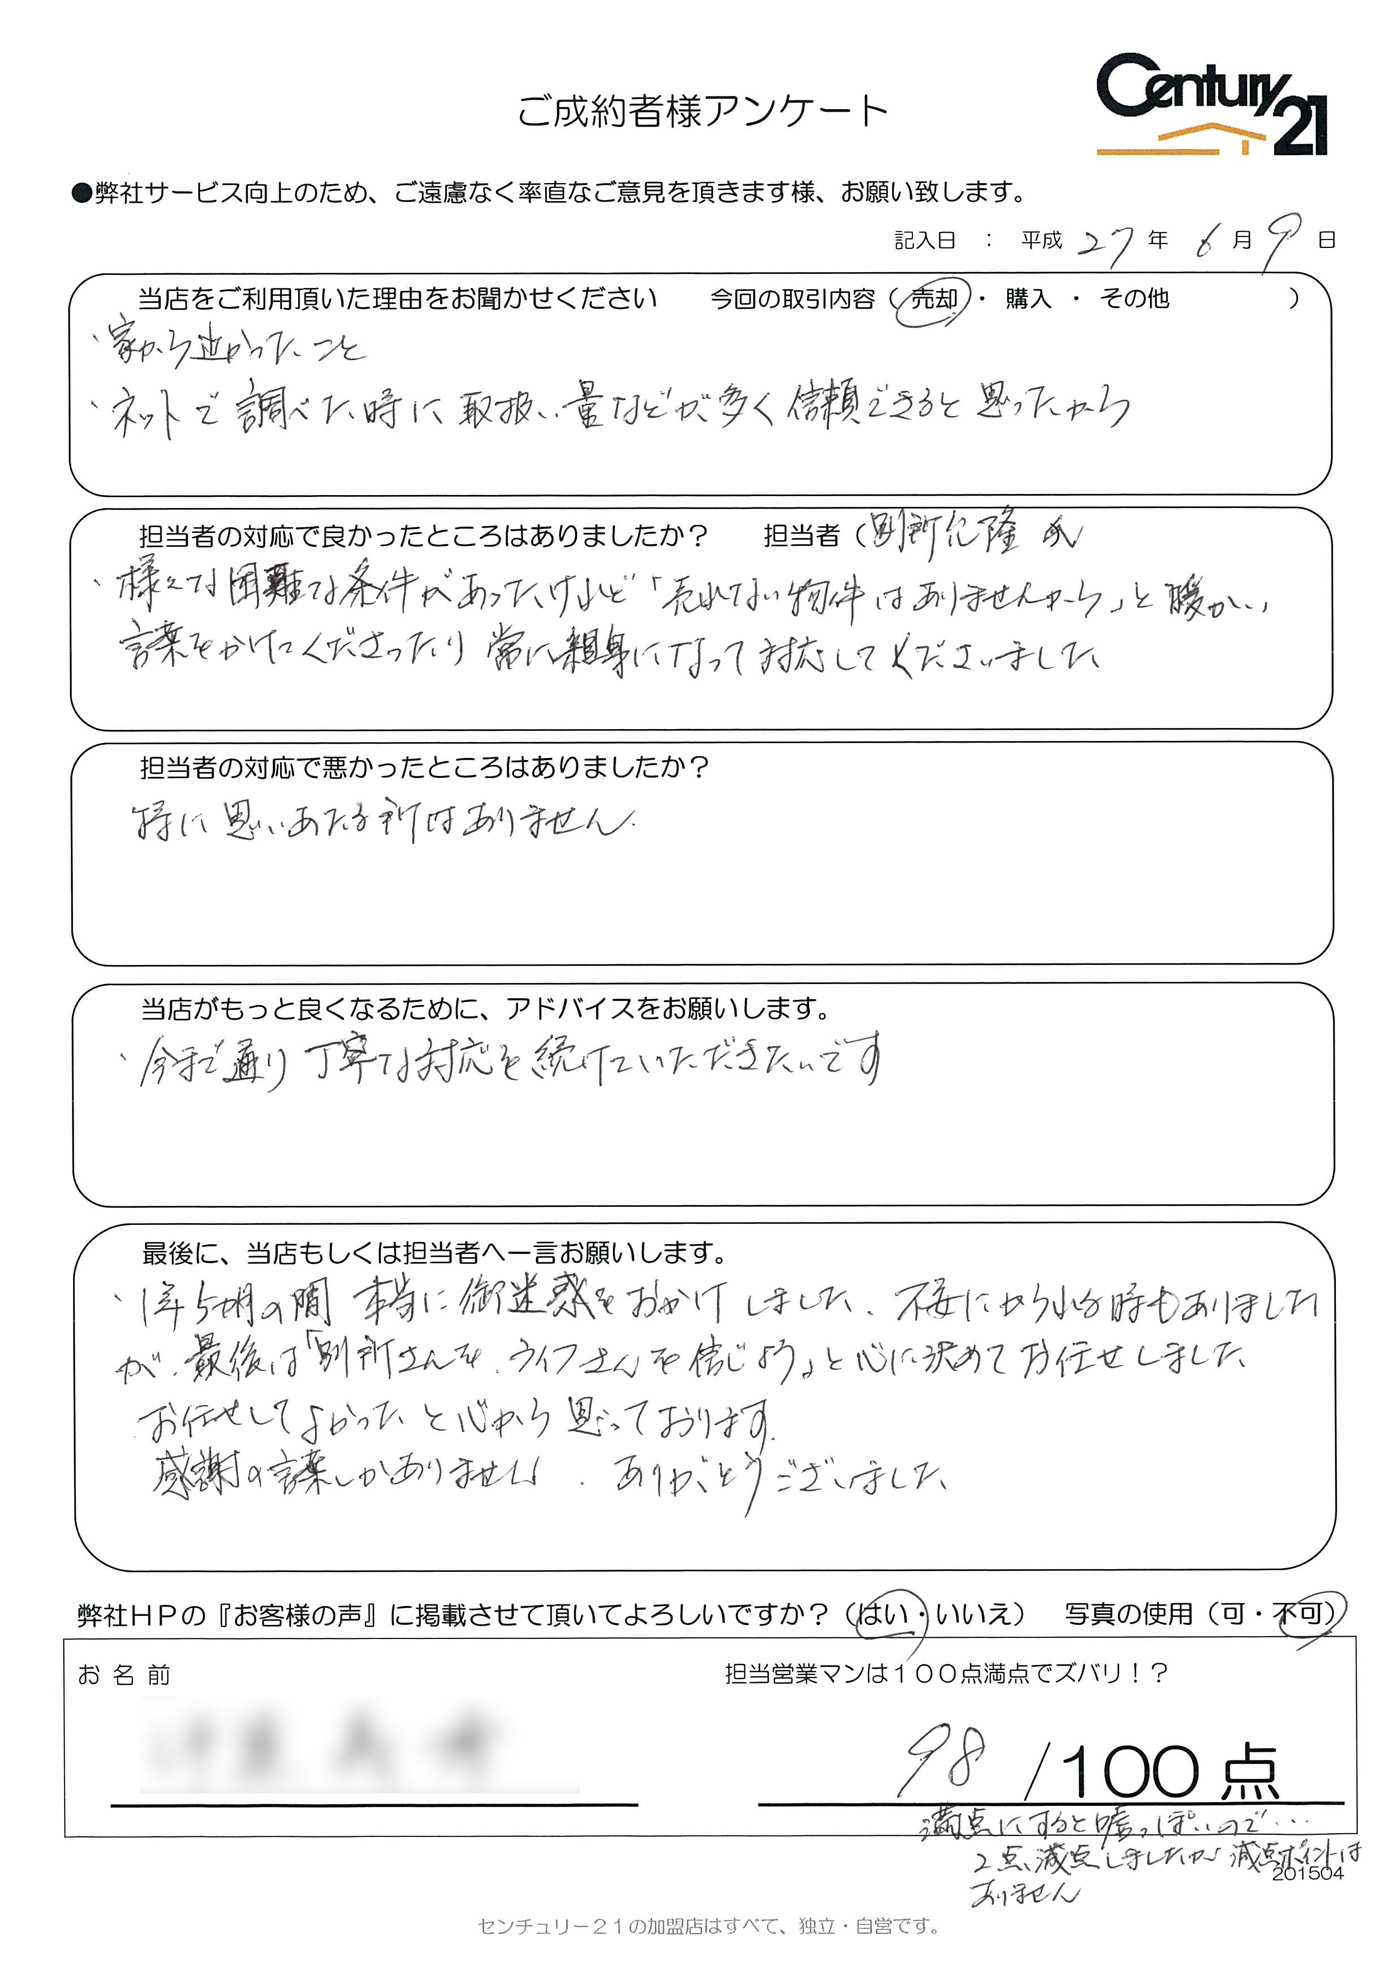 Century 21
ご成約者様アンケート
●弊社サービス向上のため、ご遠慮なく率直なご意見を頂きます様、お願い致します。
記入日 ： 平成 27 年 6 月 9 日
当店をご利用頂いた理由をお聞かせください 今回の取引内容（ 売却 ・ 購入 ・ その他 ）
、家から近かったこと
、ネットで調べた時に取扱い量などが多く信頼できると思ったから
担当者の対応で良かったところはありましたか？ 担当者（別所允隆 氏
、様々な困難な条件があったけれど「売れない物件はありませんから」と暖かい
言葉をかけてくださったり常に親身になって対応してくださいました
担当者の対応で悪かったところはありましたか？
特に思いあたる所はありません.
当店がもっと良くなるために、アドバイスをお願いします。
、今まで通り丁寧な対応を続けていただきたいです
最後に、当店もしくは担当者へ一言お願いします。
、1年5ヶ月の間 本当に御迷惑をおかけしました、不安にかられる時もありました
が、最後は「別所さんを、ライフさんを信じよう」と心に決めてお任せしました
お任せしてよかったと心から思っております.
感謝の言葉しかありません . ありがとうございました
弊社ＨＰの『お客様の声』に掲載させて頂いてよろしいですか？（はい・いいえ） 写真の使用（可・不可）
お 名 前 担当営業マンは１００点満点でズバリ！？
98 /100 点
満点にすると嘘っぽいので…
2点、減点しましたが減点ポイントは
201504
ありません
センチュリー２１の加盟店はすべて、独立・自営です。